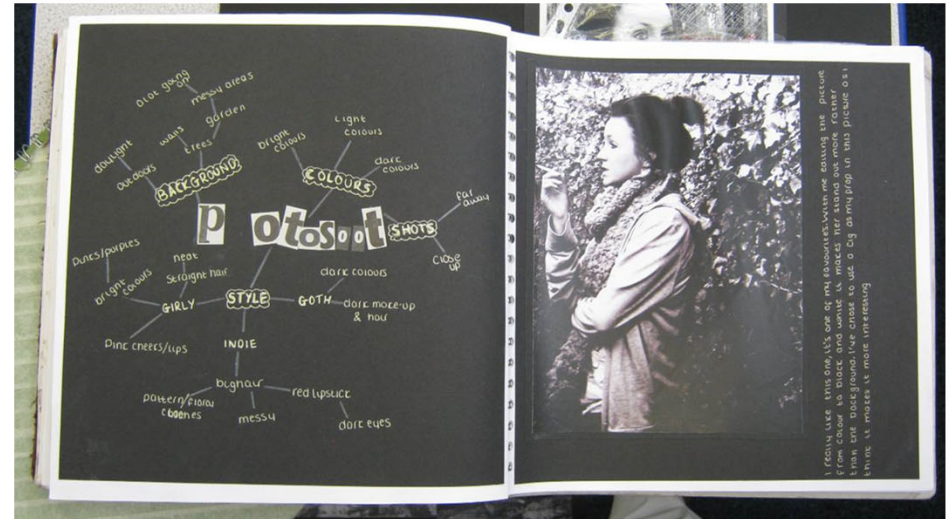 a lot going on
messy areas
garden
walls
trees
daylight
outdoors
BACKGROUND
bright colours
light colours
dark colours
COLOURS
P otosoot
SHOTS
far away
close up
Pinks/purples
bright colours
neat
straight hair
GIRLY
Pink cheeks/lips
STYLE
GOTH
dark colours
dark make-up & hair
INDIE
big hair
pattern/floral clothes
messy
red lipstick
dark eyes
I really like this one, it's one of my favourites. With me editing the picture
from colour to black and white it makes her stand out more rather
than the background. I've chose to use a cig as my prop in this picture as i
think it makes it more interesting